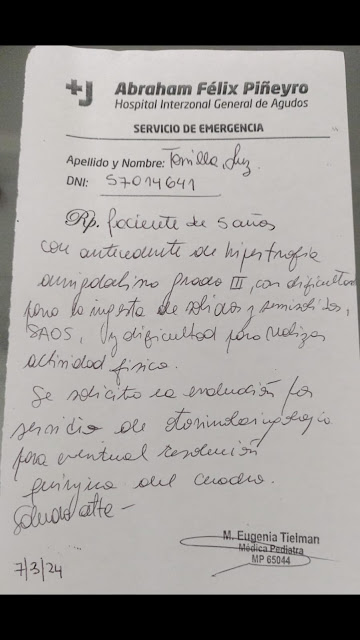 +J Abraham Félix Piñeyro
Hospital Interzonal General de Agudos
SERVICIO DE EMERGENCIA
Apellido y Nombre: Luz
DNI: 57014641
Rp. Paciente de 5 años
con antecedente de hipertrofia
amigdalina grado III, con dificultad
para la ingesta de solidos y semisolidos,
SAOS, y dificultad para realizar
actividad física.
Se solicita la evaluación por
servicio de otorrinolaringologia
para eventual resolución
quirurgica del cuadro.
Saluda atte-
7/3/24
M. Eugenia Tielman
Médica Pediatra
MP 65044